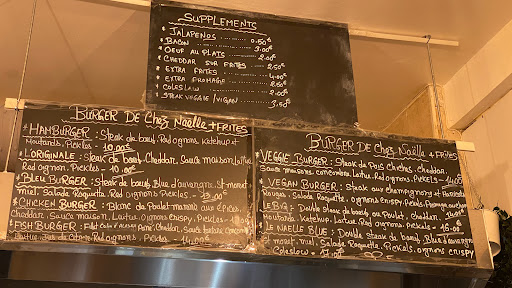 SUPPLEMENTS
* JALAPENOS ........ 0.50€
* BACON ........ 3.00€
* OEUF AU PLATS ........ 2.00€
* CHEDDAR SUR FRITES ... 2.50€
* EXTRA FRITES ........ 4.00€
* EXTRA FROMAGE ........ 2.50€
* COLESLAW ........
* STEAK VEGGIE / VIGAN ........ 3.50€
BURGER DE Chez Naelle + FRITES
* HAMBURGER : Steak de bœuf, Red oignons, ketchup et
Moutarde, Pickles - 10.00€
L'ORIGINALE : Steak de bœuf, Cheddar, Sauce maison, Laitue,
Red oignon, Pickles -
* BLEU BURGER : Steak de bœuf, Bleu d'auvergne, St-moret
miel, Salade Roquette, Red oignons, Pickles -
* CHICKEN BURGER : Blanc de Poulet mariné aux épices,
Cheddar, Sauce maison, Laitue, oignons crispy, Pickles -
FISH BURGER : Filet Pané, Cheddar, Sauce
Laitue, Red oignons, Pickles 14.00€
BURGER DE Chez Naëlle + FRITES
VEGGIE BURGER : Steak de Pois Chiches, cheddar,
Sauce maison, concombre, Laitue, Red oignons, PICKELS
VEGAN BURGER : Steak aux champignons et
Rouges, Salade Roquette, oignons crispy, Pickles, Fromage
LE BIG : Double Steak de bœuf ou Poulet, cheddar,
Moutarde, Ketchup, Laitue, Red oignons, Pickels - 16.00€
LE NAELLE BLUE : Double steak de bœuf, Bleu d'auvergne
moret, miel, Salade Roquette, Pickels, oignons crispy
Coleslow -